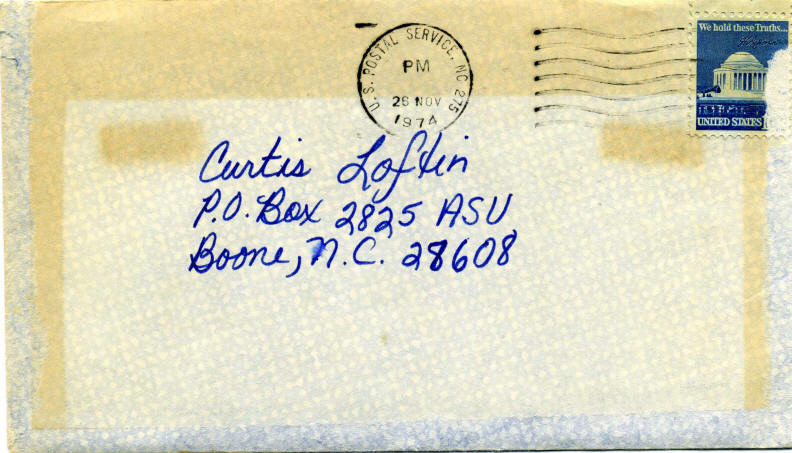 U.S. POSTAL SERVICE, NC 275
PM
26 NOV
1974
We hold these Truths...
UNITED STATES
Curtis Loftin
P.O. Box 2825 ASU
Boone, N.C. 28608